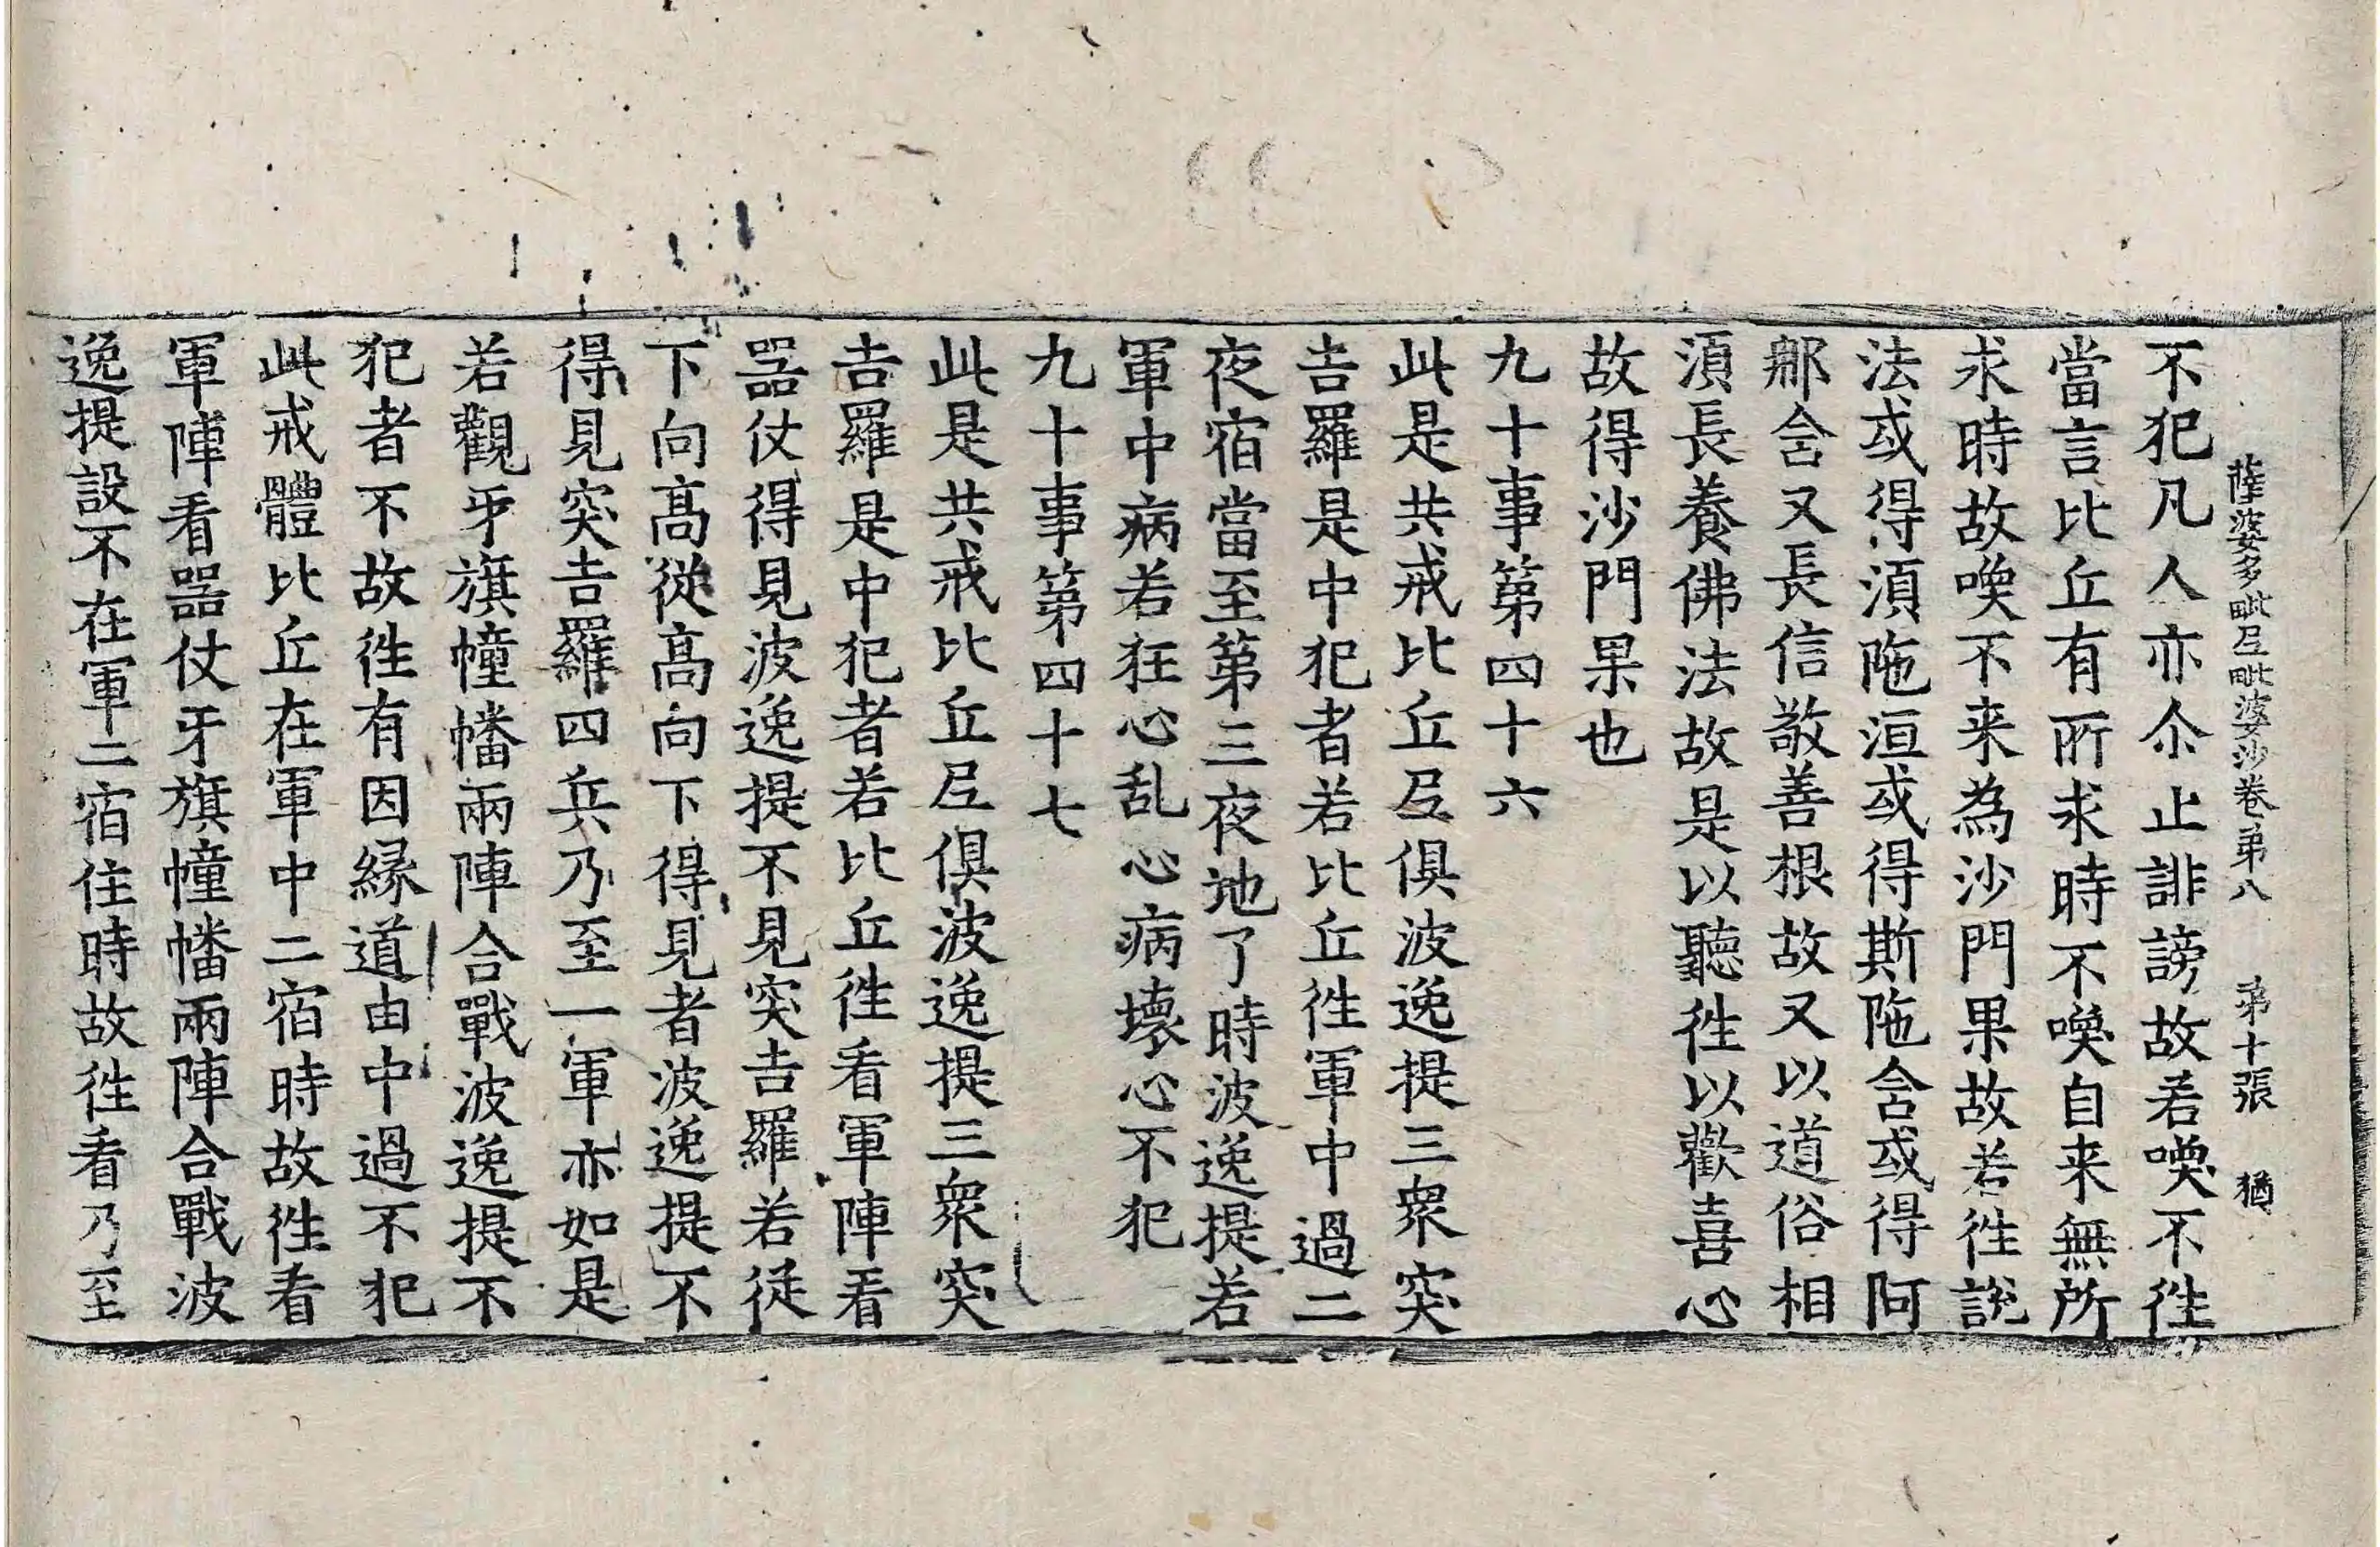 薩婆多毗尼毗婆沙卷第八 第十張 猶
不犯凡人亦尒止誹謗故若喚不徃
當言比丘有所求時不喚自来無所
求時故喚不来為沙門果故若徃說
法或得湏陁洹或得斯陁含或得阿
那含又長信敬善根故又以道俗相
湏長養佛法故是以聽徃以歡喜心
故得沙門果也
九十事第四十六
此是共戒比丘尼俱波逸提三衆突
吉羅是中犯者若比丘徃軍中過二
夜宿當至第三夜地了時波逸提若
軍中病若狂心乱心病壞心不犯
九十事第四十七
此是共戒比丘尼俱波逸提三衆突
吉羅是中犯者若比丘徃看軍陣看
器仗得見波逸提不見突吉羅若從
下向髙從髙向下得見者波逸提不
得見突吉羅四兵乃至一軍亦如是
若觀牙旗幢幡兩陣合戰波逸提不
犯者不故徃有因縁道由中過不犯
此戒體比丘在軍中二宿時故徃看
軍陣看器仗牙旗幢幡兩陣合戰波
逸提設不在軍二宿住時故徃看乃至